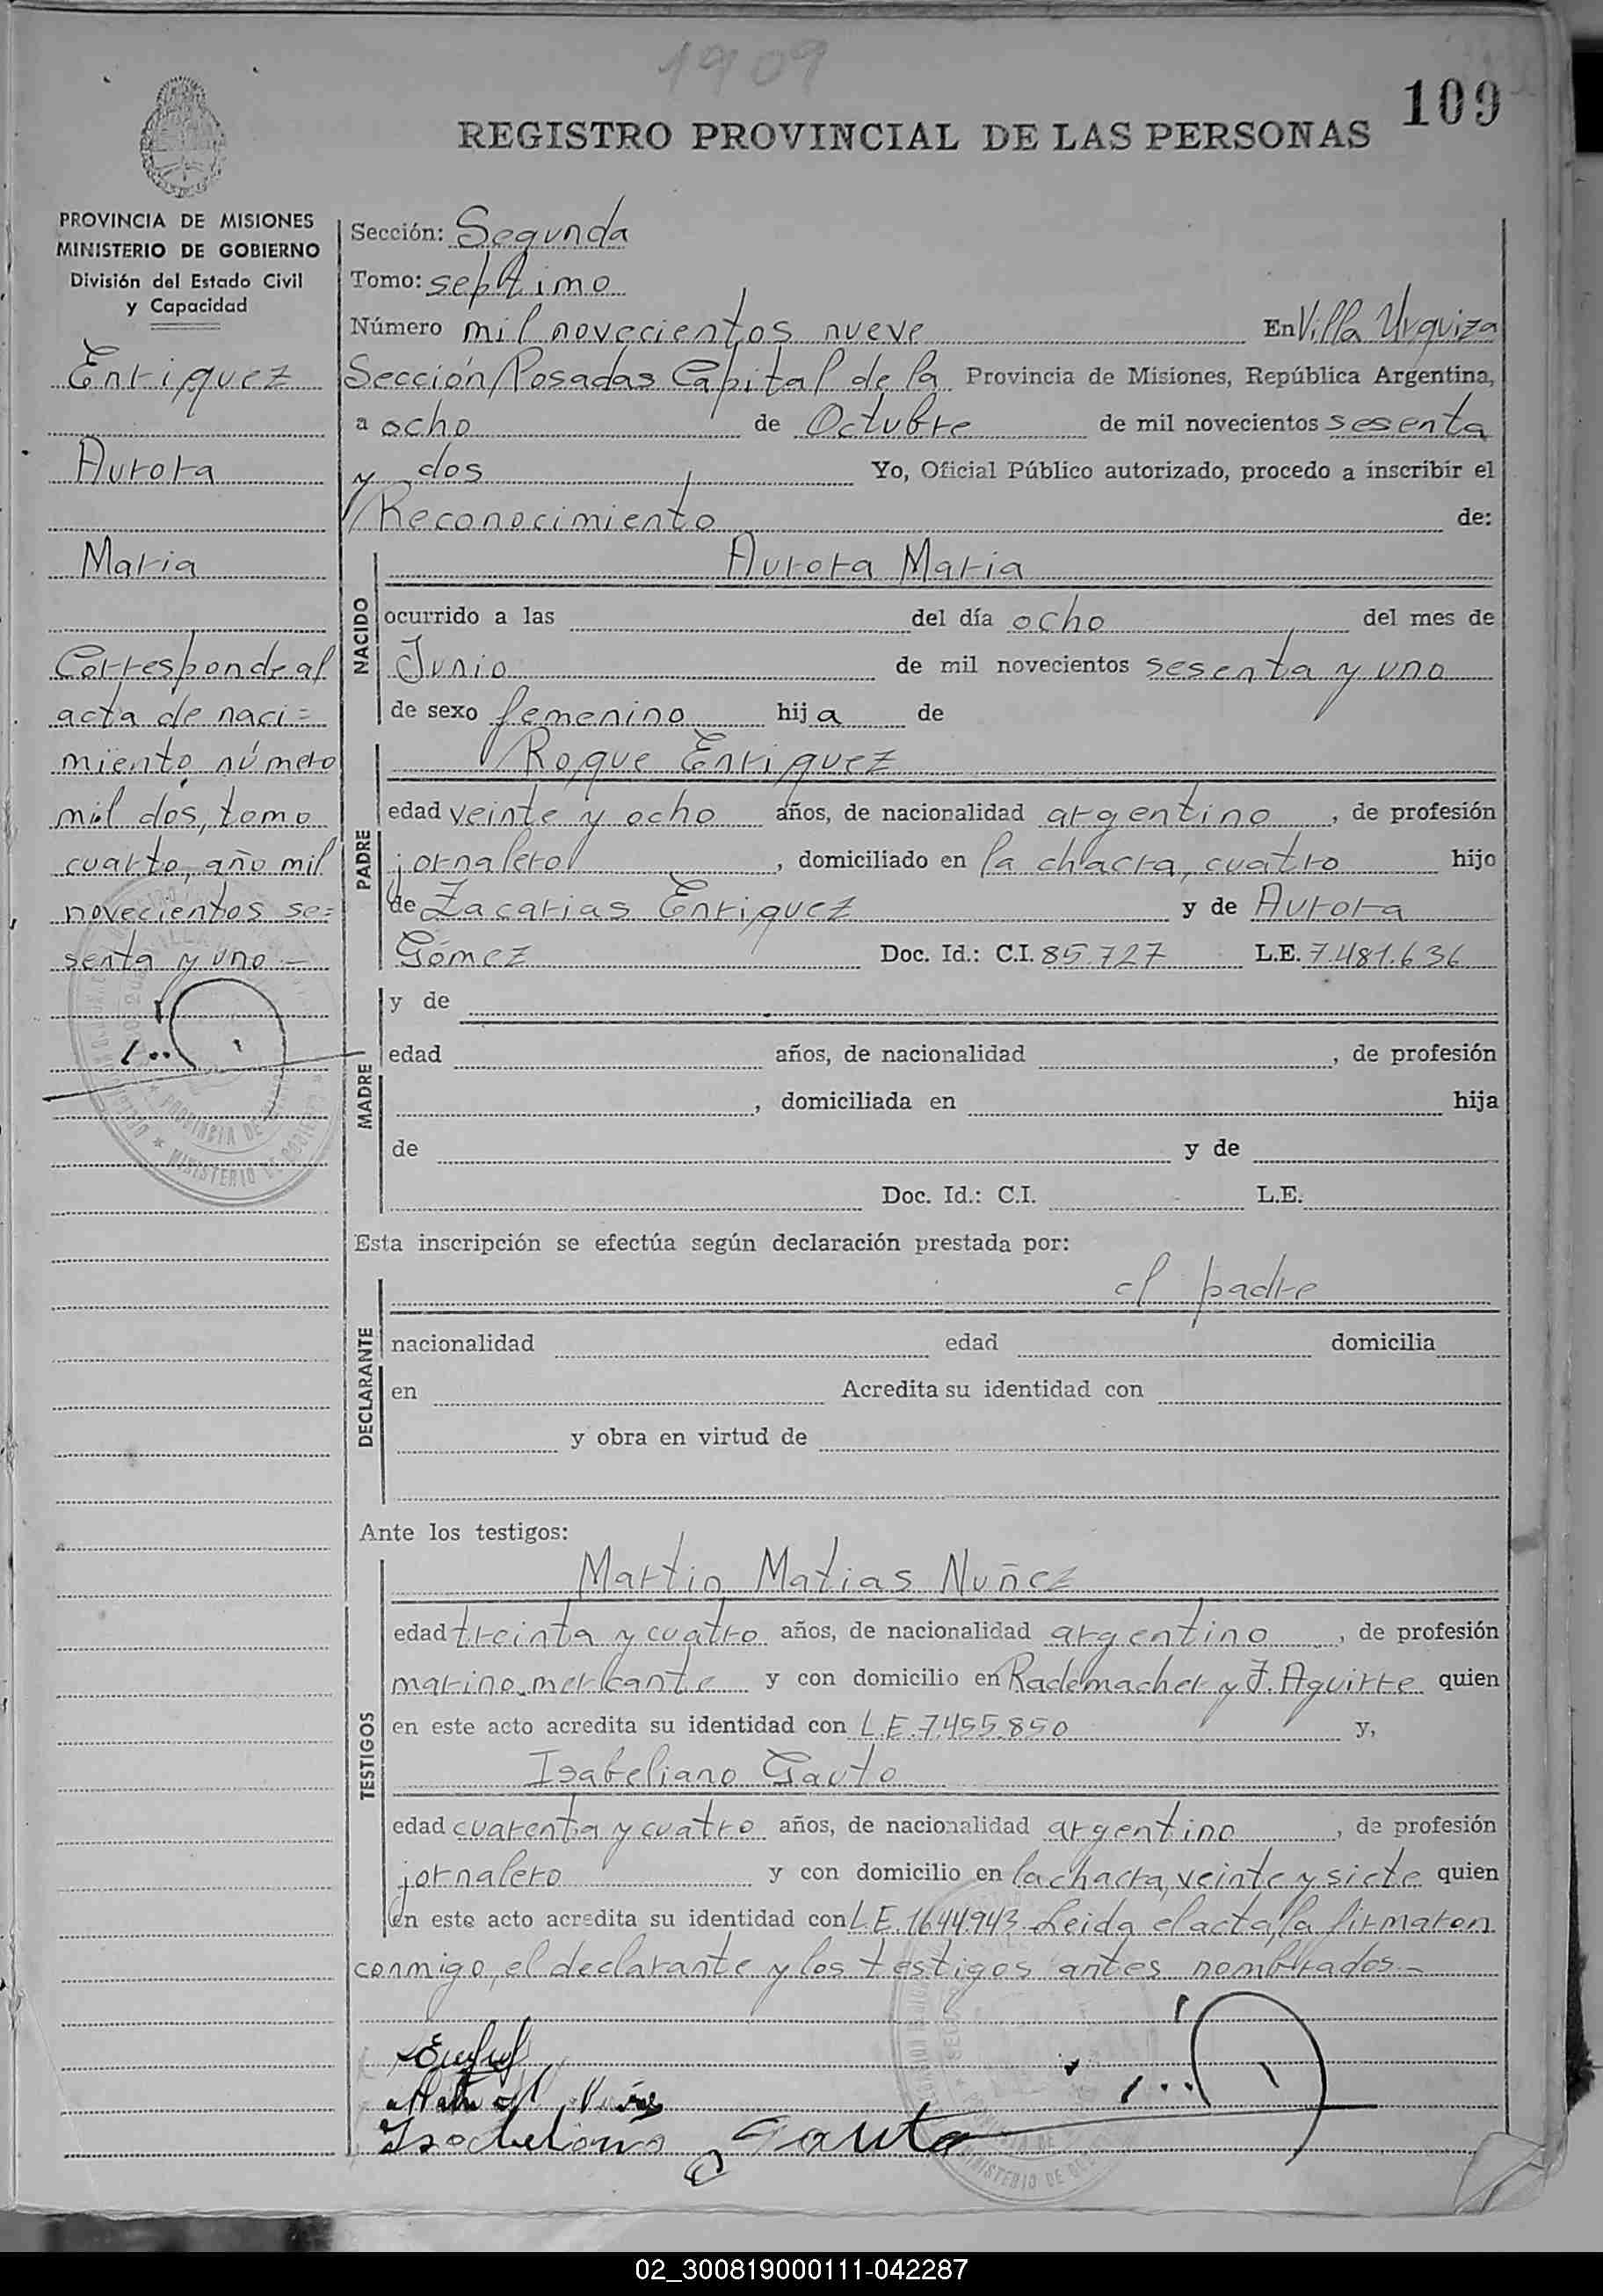 1909
109
REGISTRO PROVINCIAL DE LAS PERSONAS
PROVINCIA DE MISIONES
MINISTERIO DE GOBIERNO
División del Estado Civil
y Capacidad
Enriquez
Aurora
Maria
Corresponde al
acta de naci=
miento número
mil dos, tomo
cuarto, año mil
novecientos se=
senta y uno -
Sección: Segunda
Tomo: septimo
Número mil novecientos nueve En Villa Urquiza
Sección Posadas Capital de la Provincia de Misiones, República Argentina,
a ocho de Octubre de mil novecientos sesenta
y dos Yo, Oficial Público autorizado, procedo a inscribir el
Reconocimiento de:
NACIDO
Aurora Maria
ocurrido a las del día ocho del mes de
Junio de mil novecientos sesenta y uno
de sexo femenino hija de
PADRE
Roque Enriquez
edad veinte y ocho años, de nacionalidad argentino, de profesión
jornalero, domiciliado en la chacra, cuatro hijo
de Zacarias Enriquez y de Aurora
Gómez Doc. Id.: C.I. 85.727 L.E. 7.481.636
MADRE
y de
edad años, de nacionalidad , de profesión
, domiciliada en hija
de y de
Doc. Id.: C.I. L.E.
Esta inscripción se efectúa según declaración prestada por:
DECLARANTE
el padre
nacionalidad edad domicilia
en Acredita su identidad con
y obra en virtud de
Ante los testigos:
TESTIGOS
Martin Matias Nuñez
edad treinta y cuatro años, de nacionalidad argentino, de profesión
marino mercante y con domicilio en Rademacher y J. Aguirre quien
en este acto acredita su identidad con L.E. 7.455.850 y,
Isabeliano Gauto
edad cuarenta y cuatro años, de nacionalidad argentino, de profesión
jornalero y con domicilio en la chacra, veinte y siete quien
en este acto acredita su identidad con L.E. 1644.943. Leida el acta, la firmaron
conmigo, el declarante y los testigos antes nombrados.-
Isabeliano Gauto
02_300819000111-042287